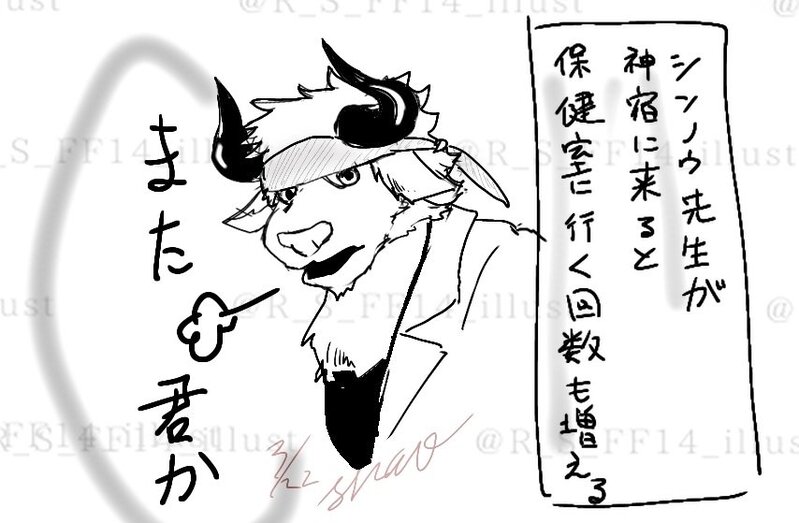 シンノウ先生が
神宿に来ると
保健室に行く回数も増える
また
君か
@R_S_FF14_illust
@R_S_FF14_illust
_S_FF14_illust
@R_S_FF14_illust
ust
@R_S_FF14_illust
@R_S_FF14_illust
@R_S_FF14_illust
3/22